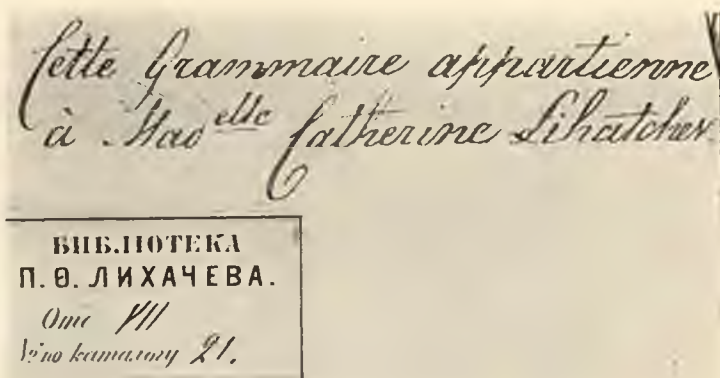 Cette Grammaire appartienne
à Mad elle Catherine Lihatchev
БИБЛІОТЕКА
П. Ѳ. ЛИХАЧЕВА.
Отд VII
№ по каталогу 21.